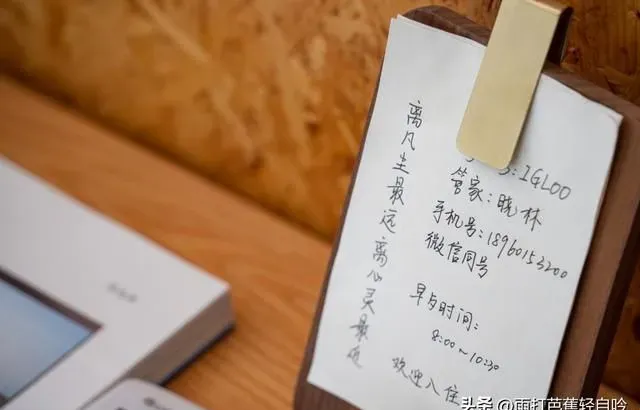 离凡尘最远离心灵最近
:IGLOO
管家:晓林
手机号:18960153200
微信同号
早点时间:
8:00~10:30
欢迎入住
头条 @雨打芭蕉轻自吟